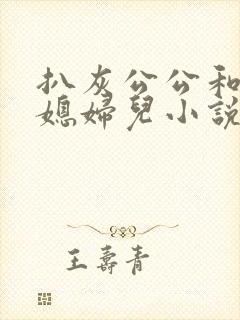 扒灰公公和
媳婦兒小説
王壽青